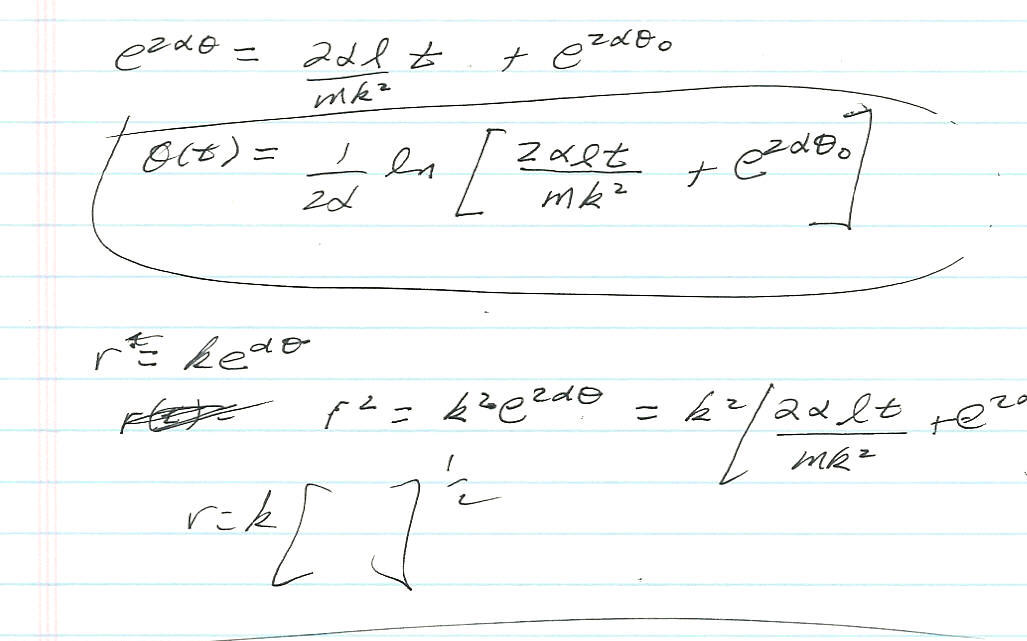 e^{2αθ} = \frac{2αl}{mk²} t + e^{2αθ₀}
θ(t) = \frac{1}{2α} ln [ \frac{2αlt}{mk²} + e^{2αθ₀} ]
r = ke^{αθ}
r² = k²e^{2αθ} = k² [ \frac{2αlt}{mk²} + e^{2α
r = k [ ]^{\frac{1}{2}}